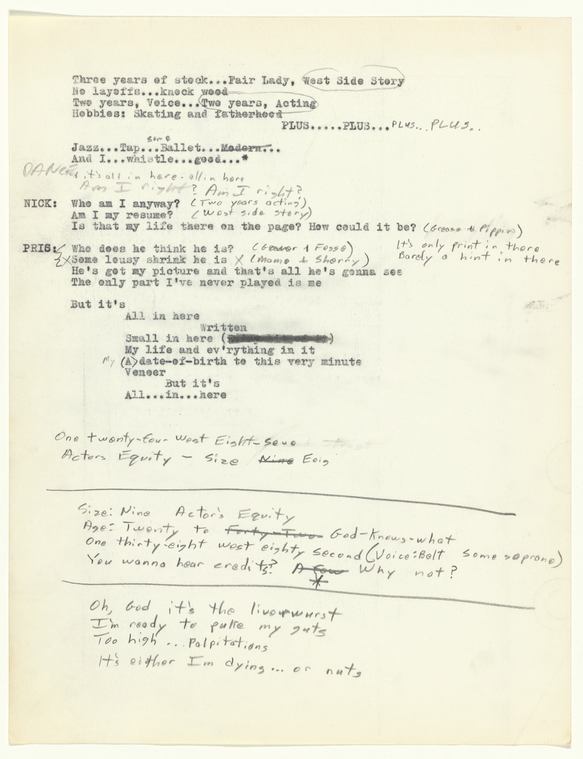 Three years of stock...Fair Lady, West Side Story
No layoffs...knock wood
Two years, Voice...Two years, Acting
Hobbies: Skating and fatherhood
PLUS.....PLUS...PLUS... PLUS..
some
Jazz...Tap...Ballet...Modern...
And I...whistle...good...*
DANCE
it's all in here - all in here
Am I right? Am I right?
NICK: Who am I anyway? (Two years acting)
Am I my resume? (West side story)
Is that my life there on the page? How could it be? (Grease & Pippin)
PRIS: Who does he think he is? ( & Fosse) It's only print in there
Some lousy shrink he is (Mame & Sherry) Barely a hint in there
He's got my picture and that's all he's gonna see
The only part I've never played is me
But it's
All in here
Written
Small in here (
My life and ev'rything in it
My (A) date-of-birth to this very minute
Veneer
But it's
All...in...here
One twenty-four West Eight-Seve
Actors Equity - Size Nine Eeig
Size: Nine Actor's Equity
Age: Twenty to Forty-Two God-knows-what
One thirty-eight west eighty second (Voice: Belt some soprano)
You wanna hear credits? A few Why not?
Oh, God it's the liverwurst
I'm ready to puke my guts
Too high ... Palpitations
It's either I'm dying... or nuts